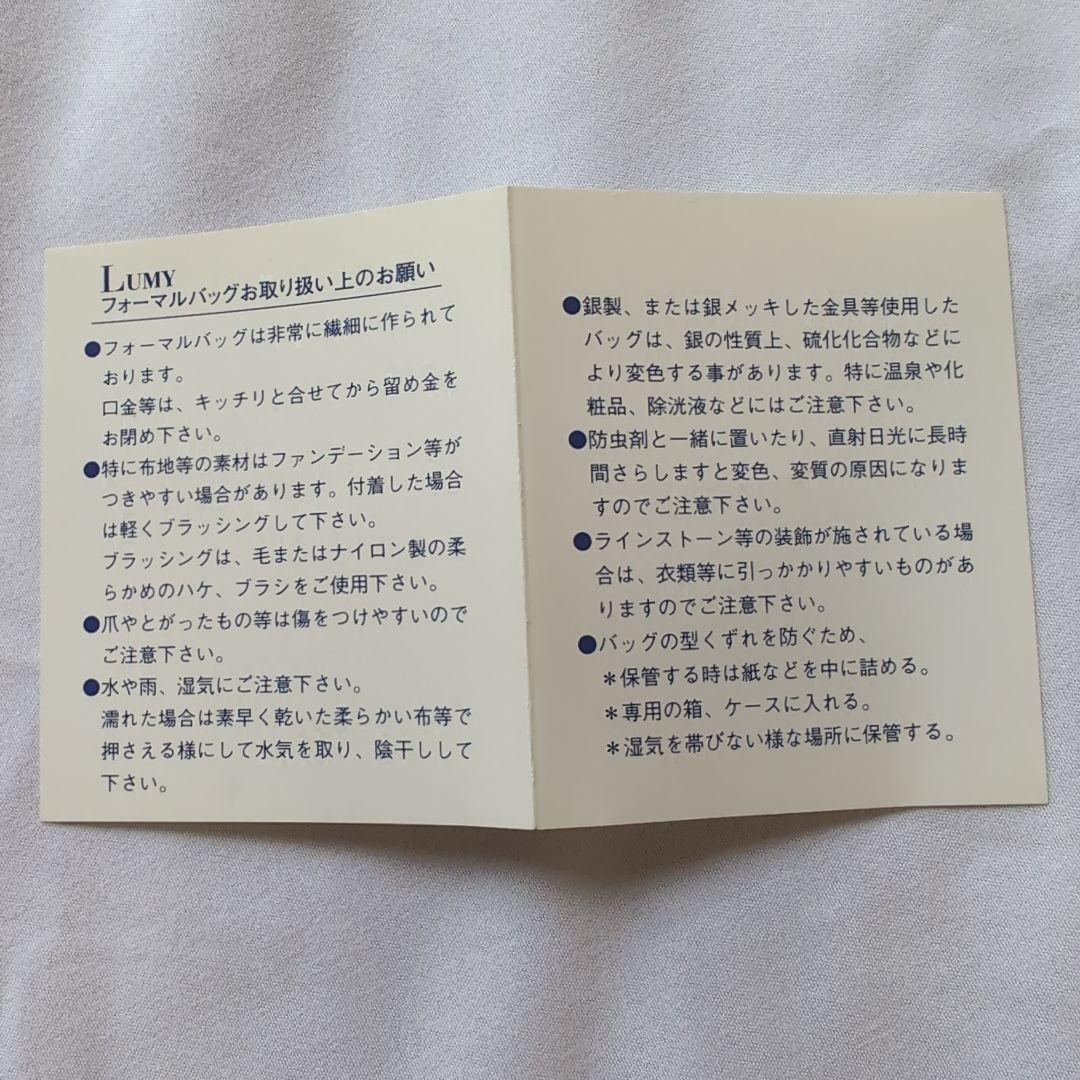 LUMY
フォーマルバッグお取り扱い上のお願い
●フォーマルバッグは非常に繊細に作られて
おります。
口金等は、キッチリと合せてから留め金を
お閉め下さい。
●特に布地等の素材はファンデーション等が
つきやすい場合があります。付着した場合
は軽くブラッシングして下さい。
ブラッシングは、毛またはナイロン製の柔
らかめのハケ、ブラシをご使用下さい。
●爪やとがったもの等は傷をつけやすいので
ご注意下さい。
●水や雨、湿気にご注意下さい。
濡れた場合は素早く乾いた柔らかい布等で
押さえる様にして水気を取り、陰干しして
下さい。
●銀製、または銀メッキした金具等使用した
バッグは、銀の性質上、硫化化合物などに
より変色する事があります。特に温泉や化
粧品、除洸液などにはご注意下さい。
●防虫剤と一緒に置いたり、直射日光に長時
間さらしますと変色、変質の原因になりま
すのでご注意下さい。
●ラインストーン等の装飾が施されている場
合は、衣類等に引っかかりやすいものがあ
りますのでご注意下さい。
●バッグの型くずれを防ぐため、
＊保管する時は紙などを中に詰める。
＊専用の箱、ケースに入れる。
＊湿気を帯びない様な場所に保管する。